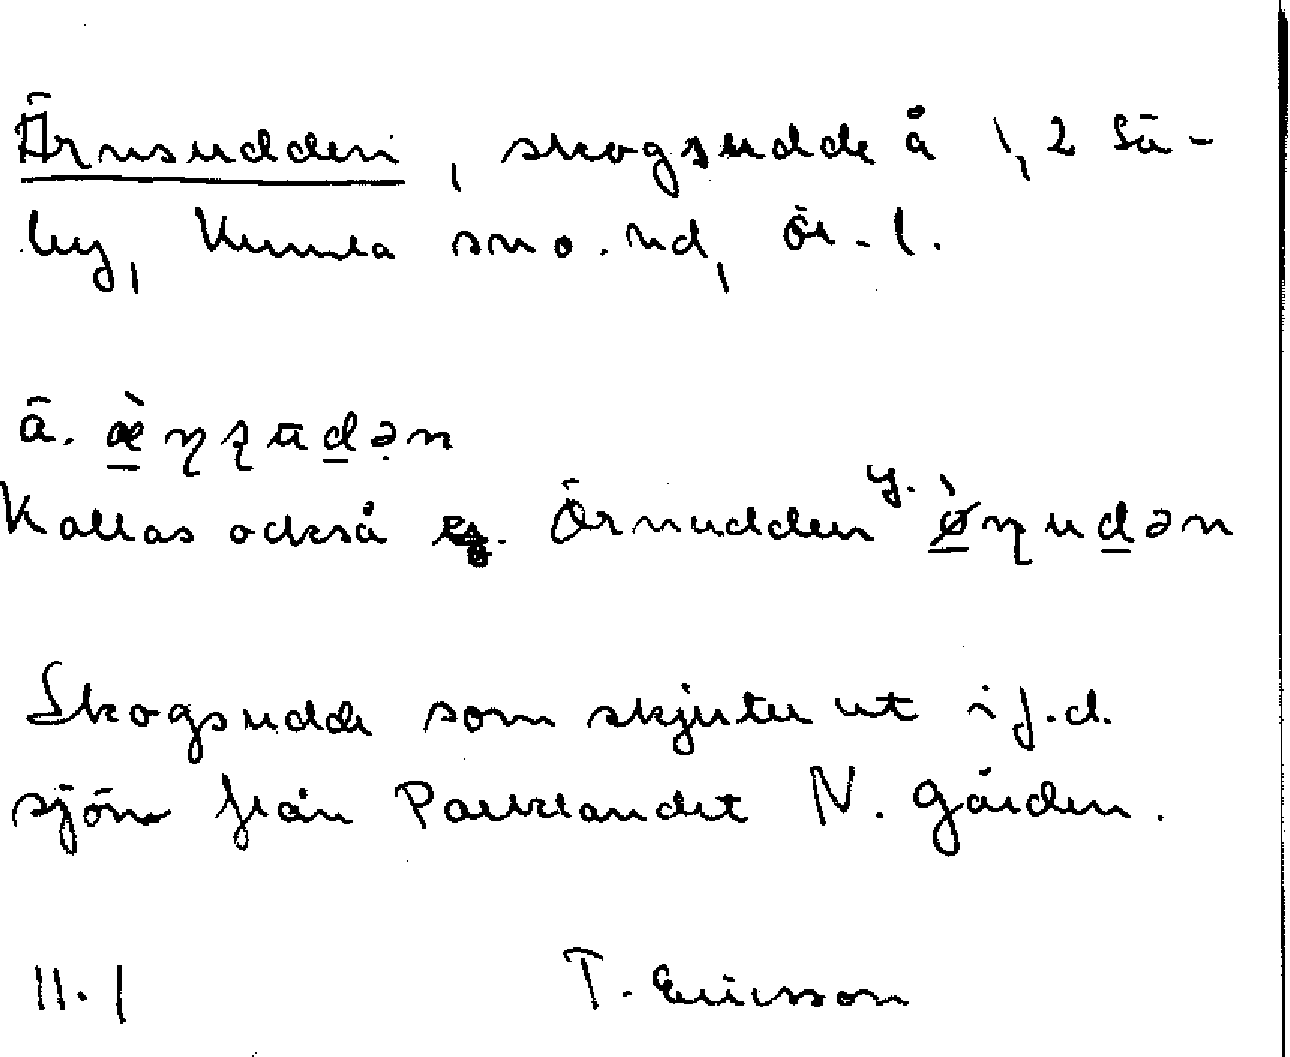 Ärnsudden, skogsudde å 1,2 Sä-
by, Kumla sn o. hd, Ör. l.
ä. æ̀ɳʂudən
Kallas också Örnudden y. ø̀ɳudən
Skogsudde som skjuter ut i f.d.
sjön från Parklandet N. gården.
11.1 T. Ericsson